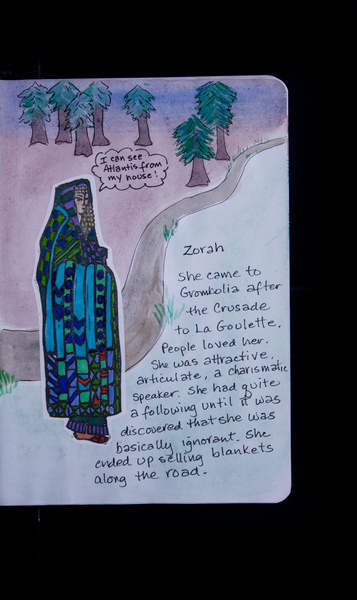 I can see
Atlantis from
my house!
Zorah
She came to
Grombolia after
the Crusade
to La Goulette.
People loved her.
She was attractive,
articulate, a charismatic
speaker. She had quite
a following until it was
discovered that she was
basically ignorant. She
ended up selling blankets
along the road.